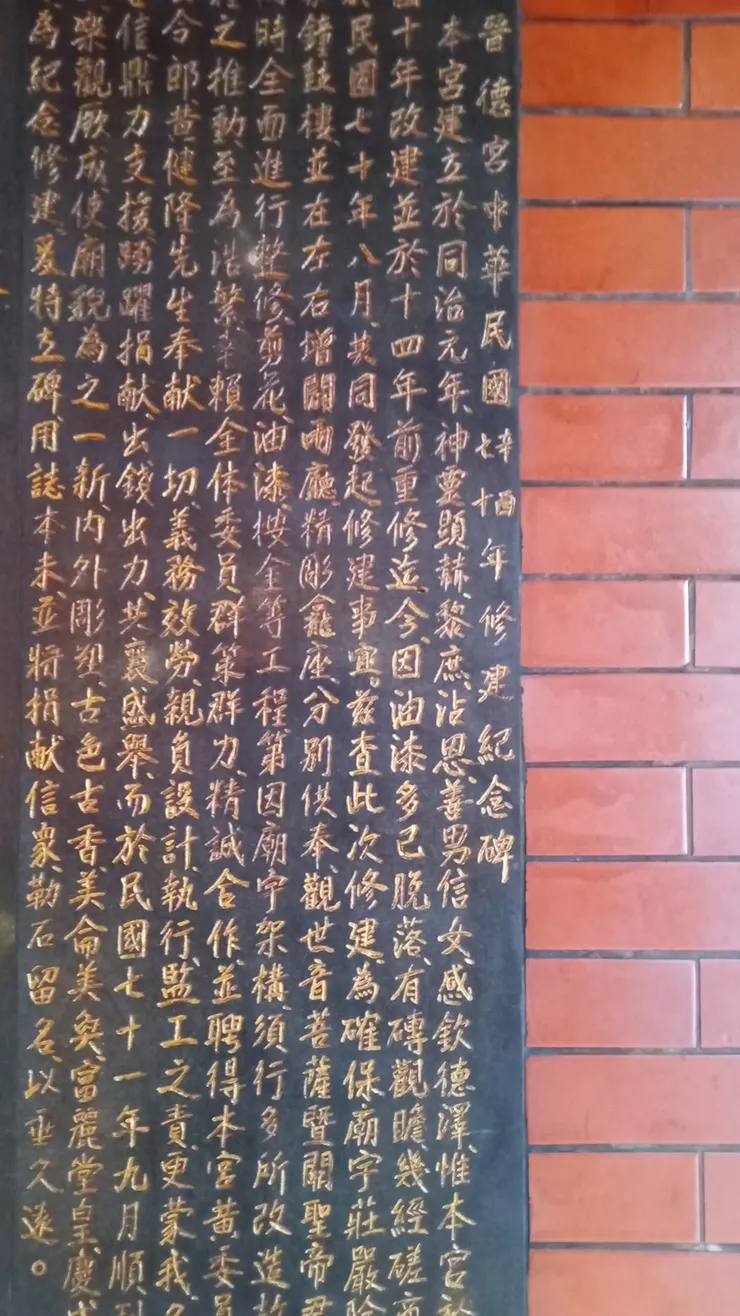 晉德宮中華民國七十年辛酉修建紀念碑
本宮建立於同治元年、神靈顯赫、黎庶沾恩、善男信女、感欽德澤、惟本宮
十年改建並於十四年前重修迄今、因油漆多已脫落、有礙觀瞻、幾經磋商
民國七十年八月、共同發起、修建事宜。茲查此次修建、為確保廟宇莊嚴
鐘鼓樓、並在左右增闢兩廳、精彫龕座、分別供奉、觀世音菩薩暨關聖帝君
時全面進行整修、剪花、油漆、按金等工程、第因廟宇架構、須行多所改造
之推動、至為浩繁、幸賴全体委員、群策群力、精誠合作、並聘得本宮黃委員
令郎、黃健隆先生奉献一切、義務效勞、親負設計、執行、監工之責、更蒙我
信、鼎力支援、踴躍捐献、出錢出力、共襄盛舉、而於民國七十一年九月順利
樂觀厥成、使廟貌為之一新、內外彫塑、古色古香、美侖美奐、富麗堂皇、慶
為紀念修建、爰特立碑、用誌本末、並將捐献信眾、勒石留名、以垂久遠。